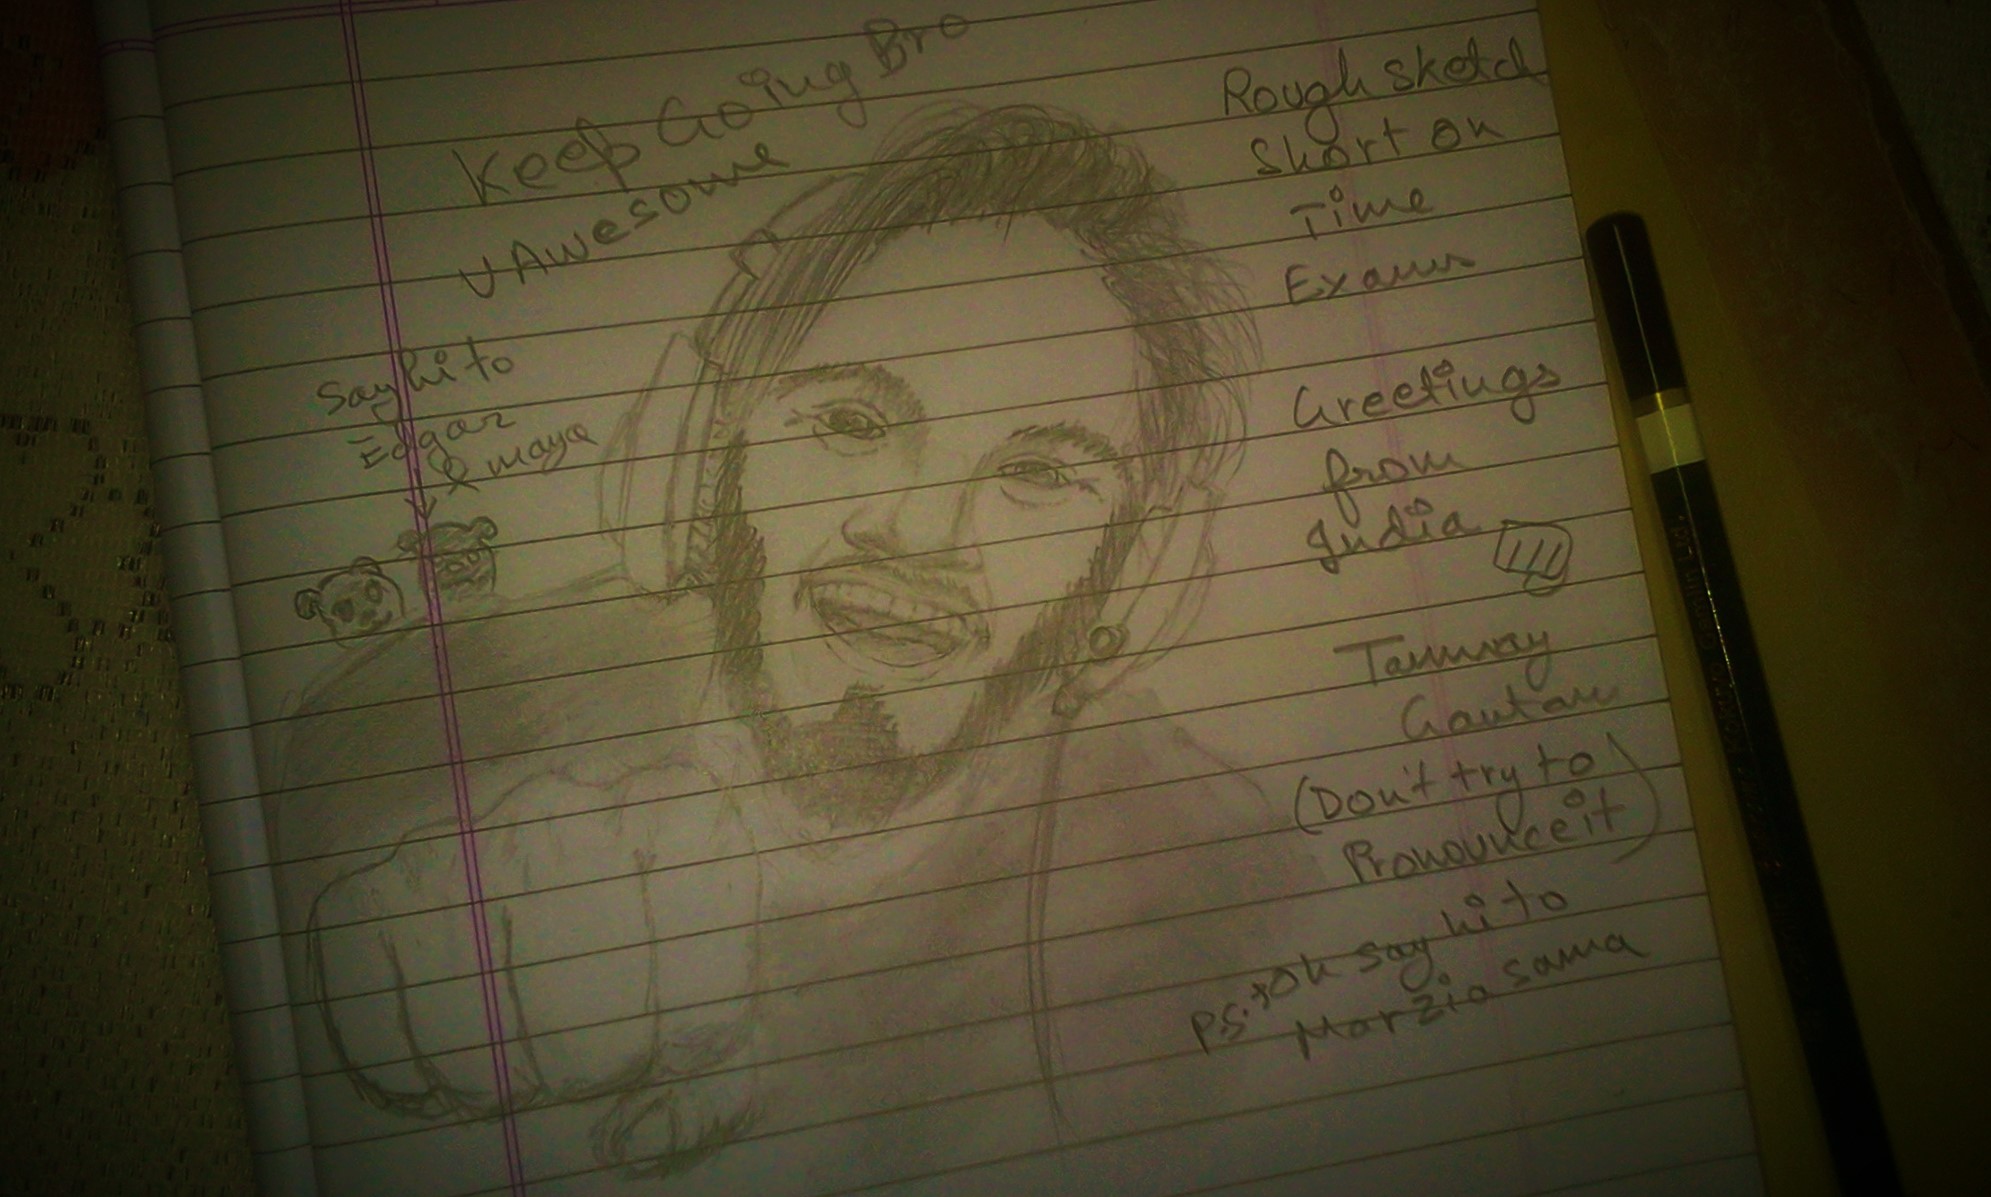 Keep Going Bro
U Awesome
Say hi to
Edgar
& maya
Rough sketch
Short on
Time
Exams
Greetings
from
India
Tanmay
Gautam
(Don't try to
Pronounce it)
P.S. *Oh say hi to
Marzia sama